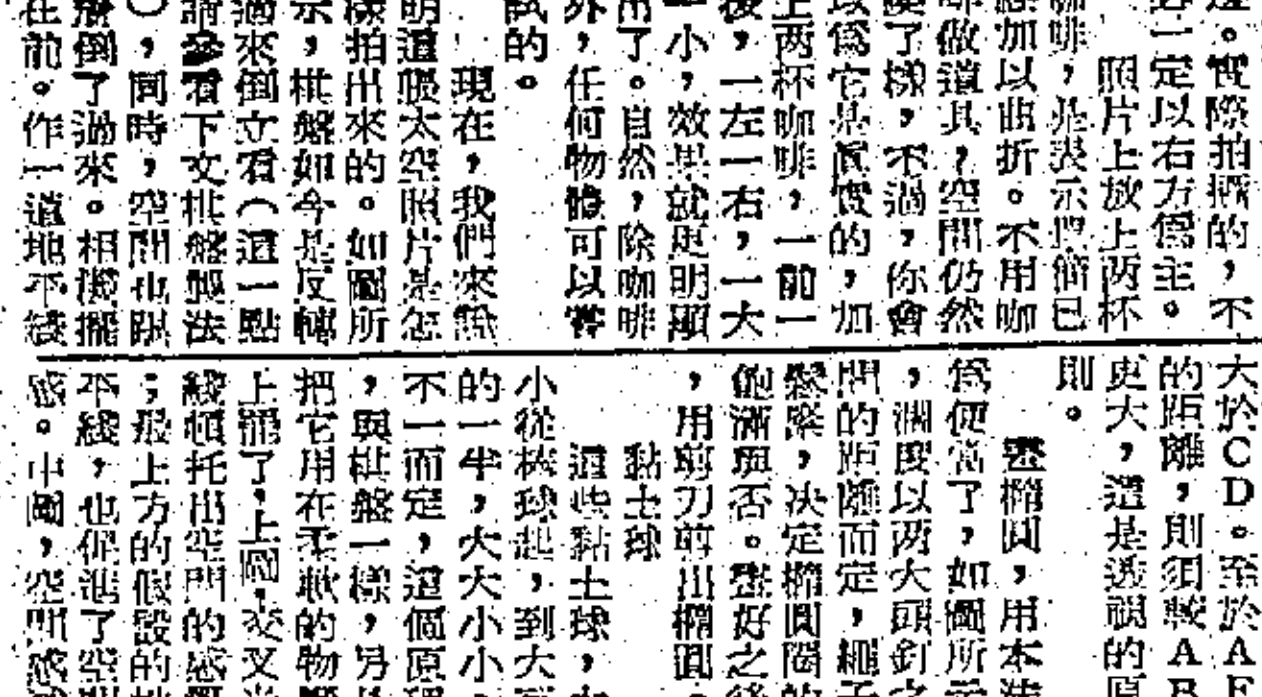 邊。實際拍攝的，不
必一定以右方為主。
照片上放上两杯
咖啡，是表示單簡已
加以曲折。不用咖
啡做道具，空間仍然
了樣，不過，你會
以為它是真實的，加
上两杯咖啡，一前一
後，一左一右，一大
一小，效果就更明顯
出了。自然，除咖啡
外，任何物體可以嘗
試的。
現在，我們來說
明這張太空照片是怎
樣拍出來的。如圖所
示，棋盤如今是反轉
過來倒立看（這一點
請參看下文棋盤製法
），同時，空間也跟
倒了過來。相機擺
在前。作一道地平綫
大於ＣＤ。至於Ａ
的距離，則須較Ａ
更大，這是透視的原
則。
畫橢圓，用本法
為便當了，如圖所示
，濶度以两大頭釘之
間的距離而定，繩子
鬆緊，决定橢圓圈的
飽滿與否。畫好之後
，用剪刀剪出橢圓。
黏土球
這些黏土球，大
小從枱球起，到大
的一半，大大小小，
不一而定，這個原理
，與棋盤一樣，另
把它用在柔軟的物體
上罷了，上圖，交叉
綫頓托出空間的感覺
；最上方的假設的地
平綫，也促進了空間
感。中圖，空間感